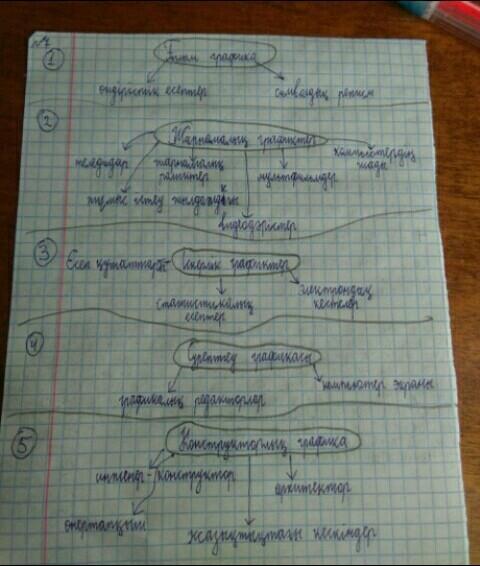 №7
1
графика
өндірістік есептер
символдық режим
2
Жарнамалық графиктер
теледидар
жарнамалық роликтер
мультфильмдер
компьютердің
жұмыс істеу жылдамдығы
видеодәрістер
3
Есеп құжаттері
Іскерлік графиктер
статистикалық есептер
электрондық кестелер
4
Суреттеу графикасы
графикалық редакторлер
компьютер экраны
5
Конструкторлық графика
инженер-конструктор
архитектор
өнертапқыш
жазықтықтағы кескіндер